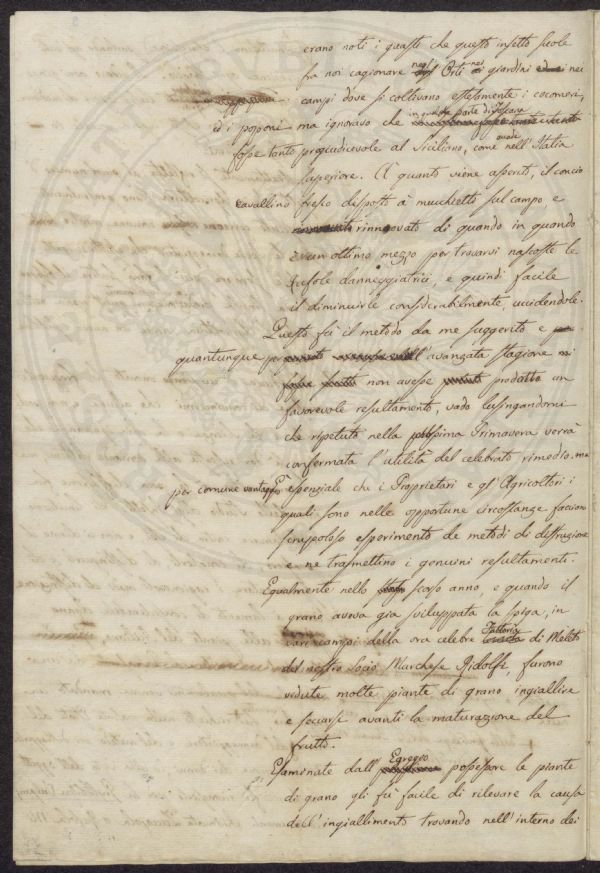 erano noti i guasti che questo insetto suole
fra noi cagionare negl' Orti nei giardini ed ai nei
campi dove si coltivano estesamente i cocomeri,
ed i poponi ma ignoravo che in qualche parte di Toscana
fosse tanto pregiudicevole al Siciliano, come accade nell' Italia
superiore. A quanto viene asserito, il concio
cavallino fresco disposto à mucchietti sul campo e
rinnovato di quando in quando
è un ottimo mezzo per trovarvi nascoste le
Zufole danneggiatrici, e quindi facile
il diminuirle considerabilmente, uccidendole.
Questo fù il metodo da me suggerito e
quantunque per l'avanzata stagione
non avesse prodotto un
favorevole resultamento, vado lusingandomi
che ripetuto nella prossima Primavera verrà
confermata l'utilità del celebrato rimedio. ma
per comune vantaggio è essenziale che i Proprietari e gl' Agricoltori i
quali sono nelle opportune circostanze facciano
scrupoloso esperimento de metodi di distruzione
e ne trasmettino i genuini resultamenti.
Egualmente nello scorso anno, e quando il
grano aveva già sviluppata la spiga, in
vari campi della ora celebre Fattoria di Meleto
del nostro Socio Marchese Ridolfi, furono
vedute molte piante di grano ingiallire
e seccarsi avanti la maturazione del
frutto.
Esaminate dall' Egregio possessore le piante
di grano gli fù facile di rilevare la causa
dell' ingiallimento trovando nell' interno dei